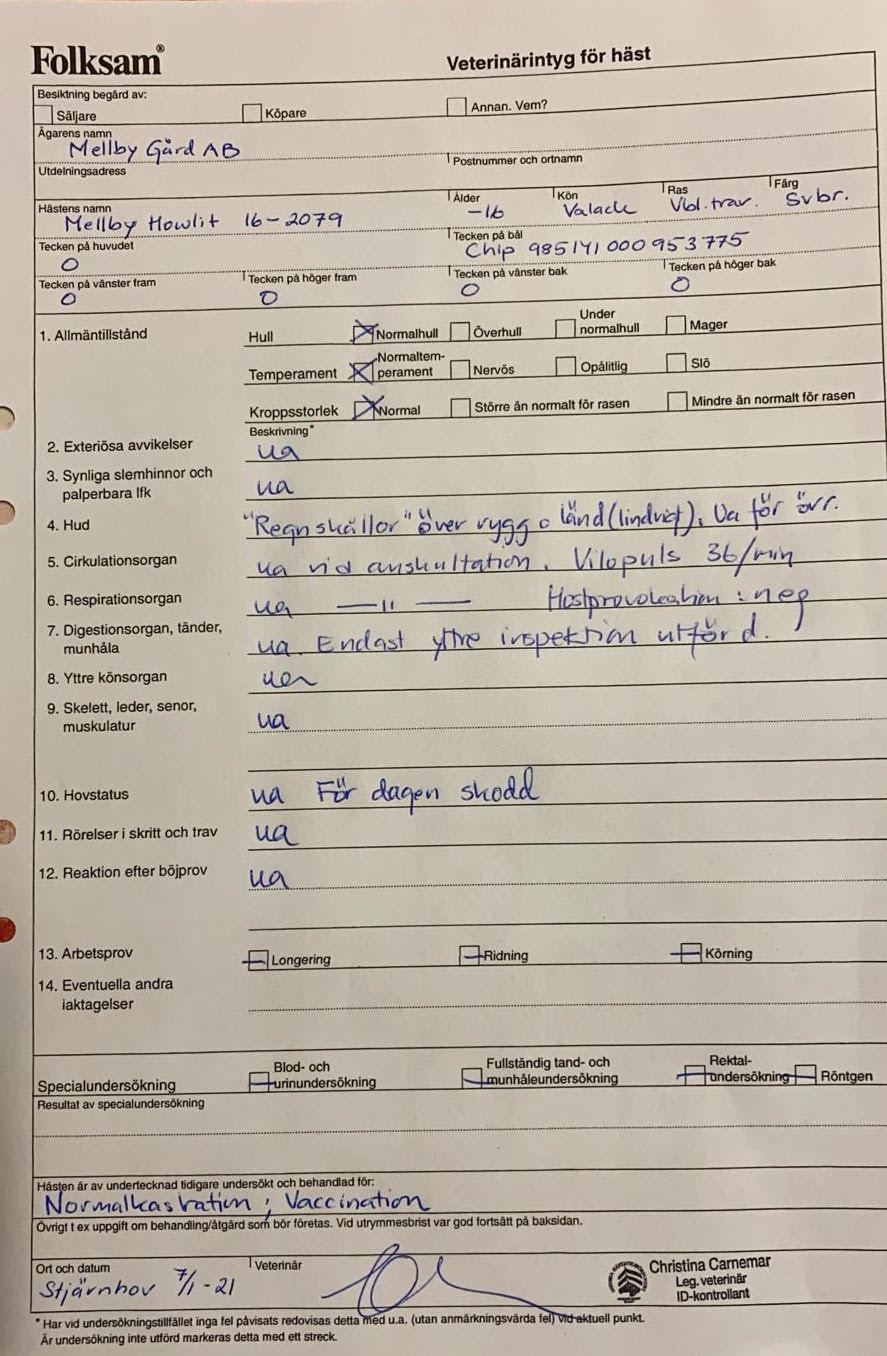 Folksam®
Veterinärintyg för häst
Besiktning begärd av:
Säljare Köpare Annan. Vem?
Ägarens namn
Mellby Gård AB
Utdelningsadress Postnummer och ortnamn
Hästens namn Ålder Kön Ras Färg
Mellby Howlit 16-2079 -16 Valack Vbl.trav. Svbr.
Tecken på huvudet Tecken på bål
O Chip 985141000953775
Tecken på vänster fram Tecken på höger fram Tecken på vänster bak Tecken på höger bak
O O O O
1. Allmäntillstånd Hull Normalhull Överhull Under normalhull Mager
Temperament Normaltem-perament Nervös Opålitlig Slö
Kroppsstorlek Normal Större än normalt för rasen Mindre än normalt för rasen
Beskrivning*
2. Exteriösa avvikelser ua
3. Synliga slemhinnor och
palperbara lfk ua
4. Hud "Regnskållor" över rygg o länd (lindrigt). Ua för övr.
5. Cirkulationsorgan ua vid auskultation. Vilopuls 36/min
6. Respirationsorgan ua —"— Hostprovokation: neg
7. Digestionsorgan, tänder,
munhåla ua. Endast yttre inspektion utförd.
8. Yttre könsorgan ua
9. Skelett, leder, senor,
muskulatur ua
10. Hovstatus ua För dagen skodd
11. Rörelser i skritt och trav ua
12. Reaktion efter böjprov ua
13. Arbetsprov Longering Ridning Körning
14. Eventuella andra
iaktagelser
Specialundersökning Blod- och urinundersökning Fullständig tand- och munhåleundersökning Rektal-undersökning Röntgen
Resultat av specialundersökning
Hästen är av undertecknad tidigare undersökt och behandlad för:
Normalkastration ; Vaccination
Övrigt t ex uppgift om behandling/åtgärd som bör företas. Vid utrymmesbrist var god fortsätt på baksidan.
Ort och datum Veterinär
Stjärnhov 7/1-21
Christina Carnemar
Leg. veterinär
ID-kontrollant
* Har vid undersökningstillfället inga fel påvisats redovisas detta med u.a. (utan anmärkningsvärda fel) vid aktuell punkt.
Är undersökning inte utförd markeras detta med ett streck.